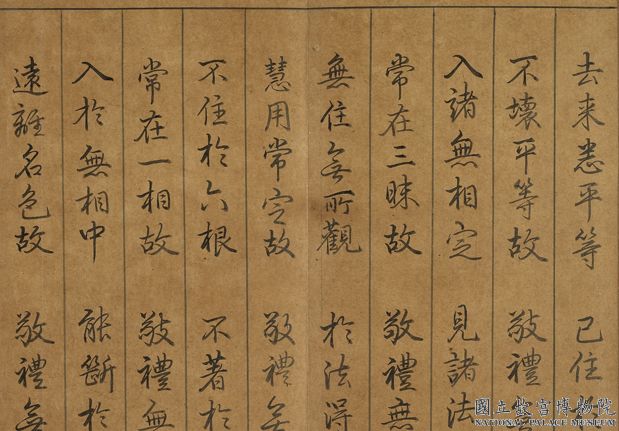 去来悉平等 已住
不壞平等故 敬禮
入諸無相定 見諸法
常在三昧故 敬禮無
無住無所觀 於法得
慧用常定故 敬禮無
不住於六根 不著於
常在一相故 敬禮無
入於無相中 能斷於
遠離名色故 敬禮無
國立故宮博物院
NATIONAL PALACE MUSEUM